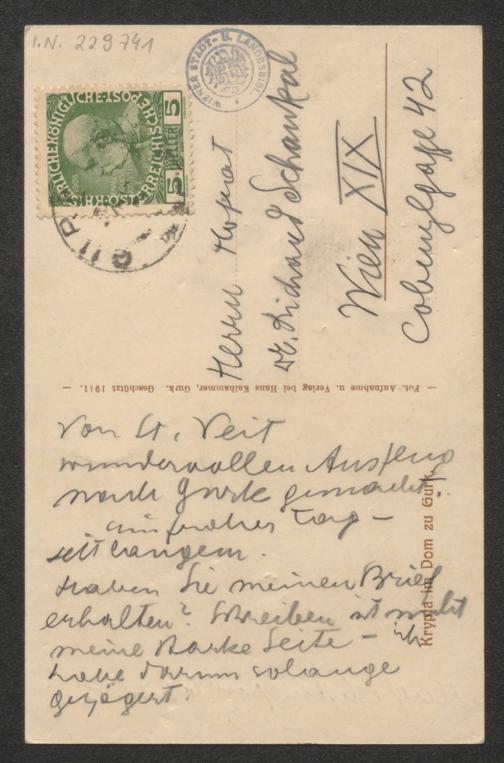 I.N. 229741
WIENER STADT- U. LANDESBIBL.
5 HELLER 5
Herrn Hofrat
Dr. Richard Schaukal
Wien XIX
Cobenzlgasse 42
— Fot. Aufnahme u. Verlag bei Hans Kalhammer, Gurk. Geschützt 1911. —
Krypta im Dom zu Gurk.
Von St. Veit
wundervollen Ausflug
nach Gurk gemacht.
ein froher Tag –
seit langem.
Haben Sie meinen Brief
erhalten? Schreiben ist nicht
meine starke Seite – ich
habe darum solange
gezögert.